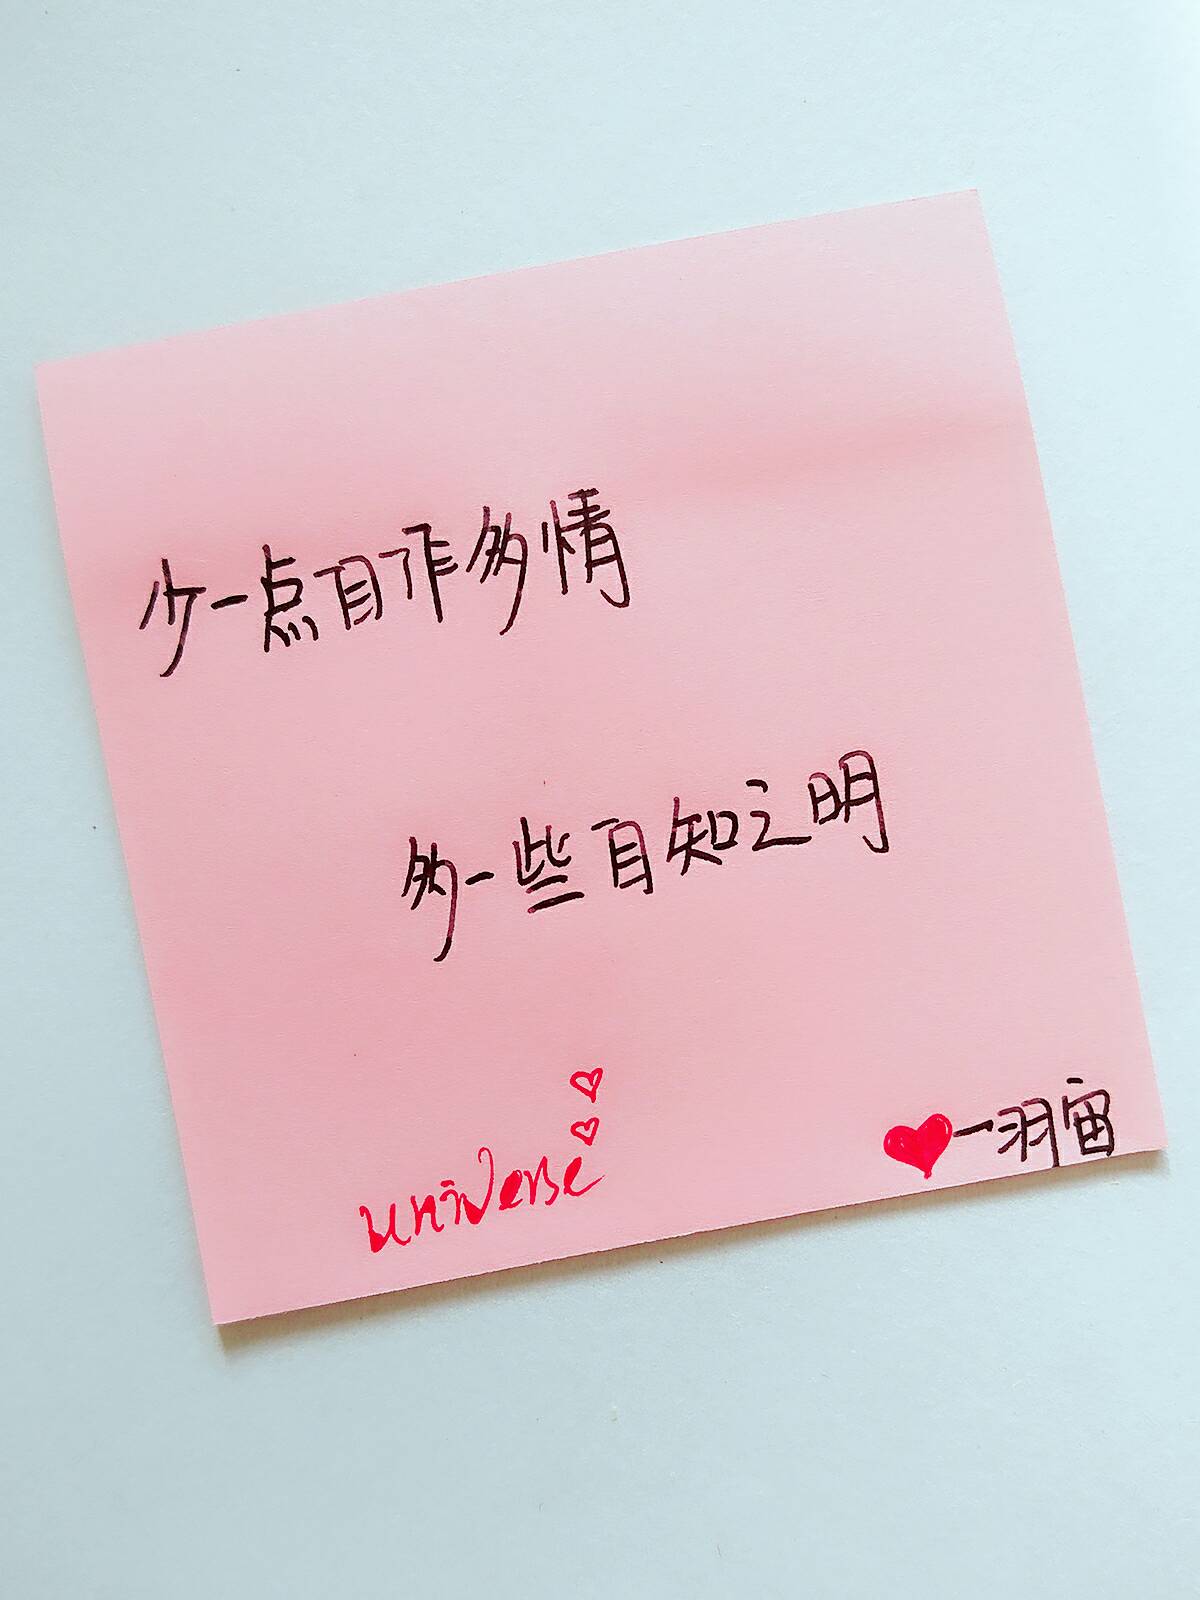 少一点自作多情
多一些自知之明
universe
一羽宙